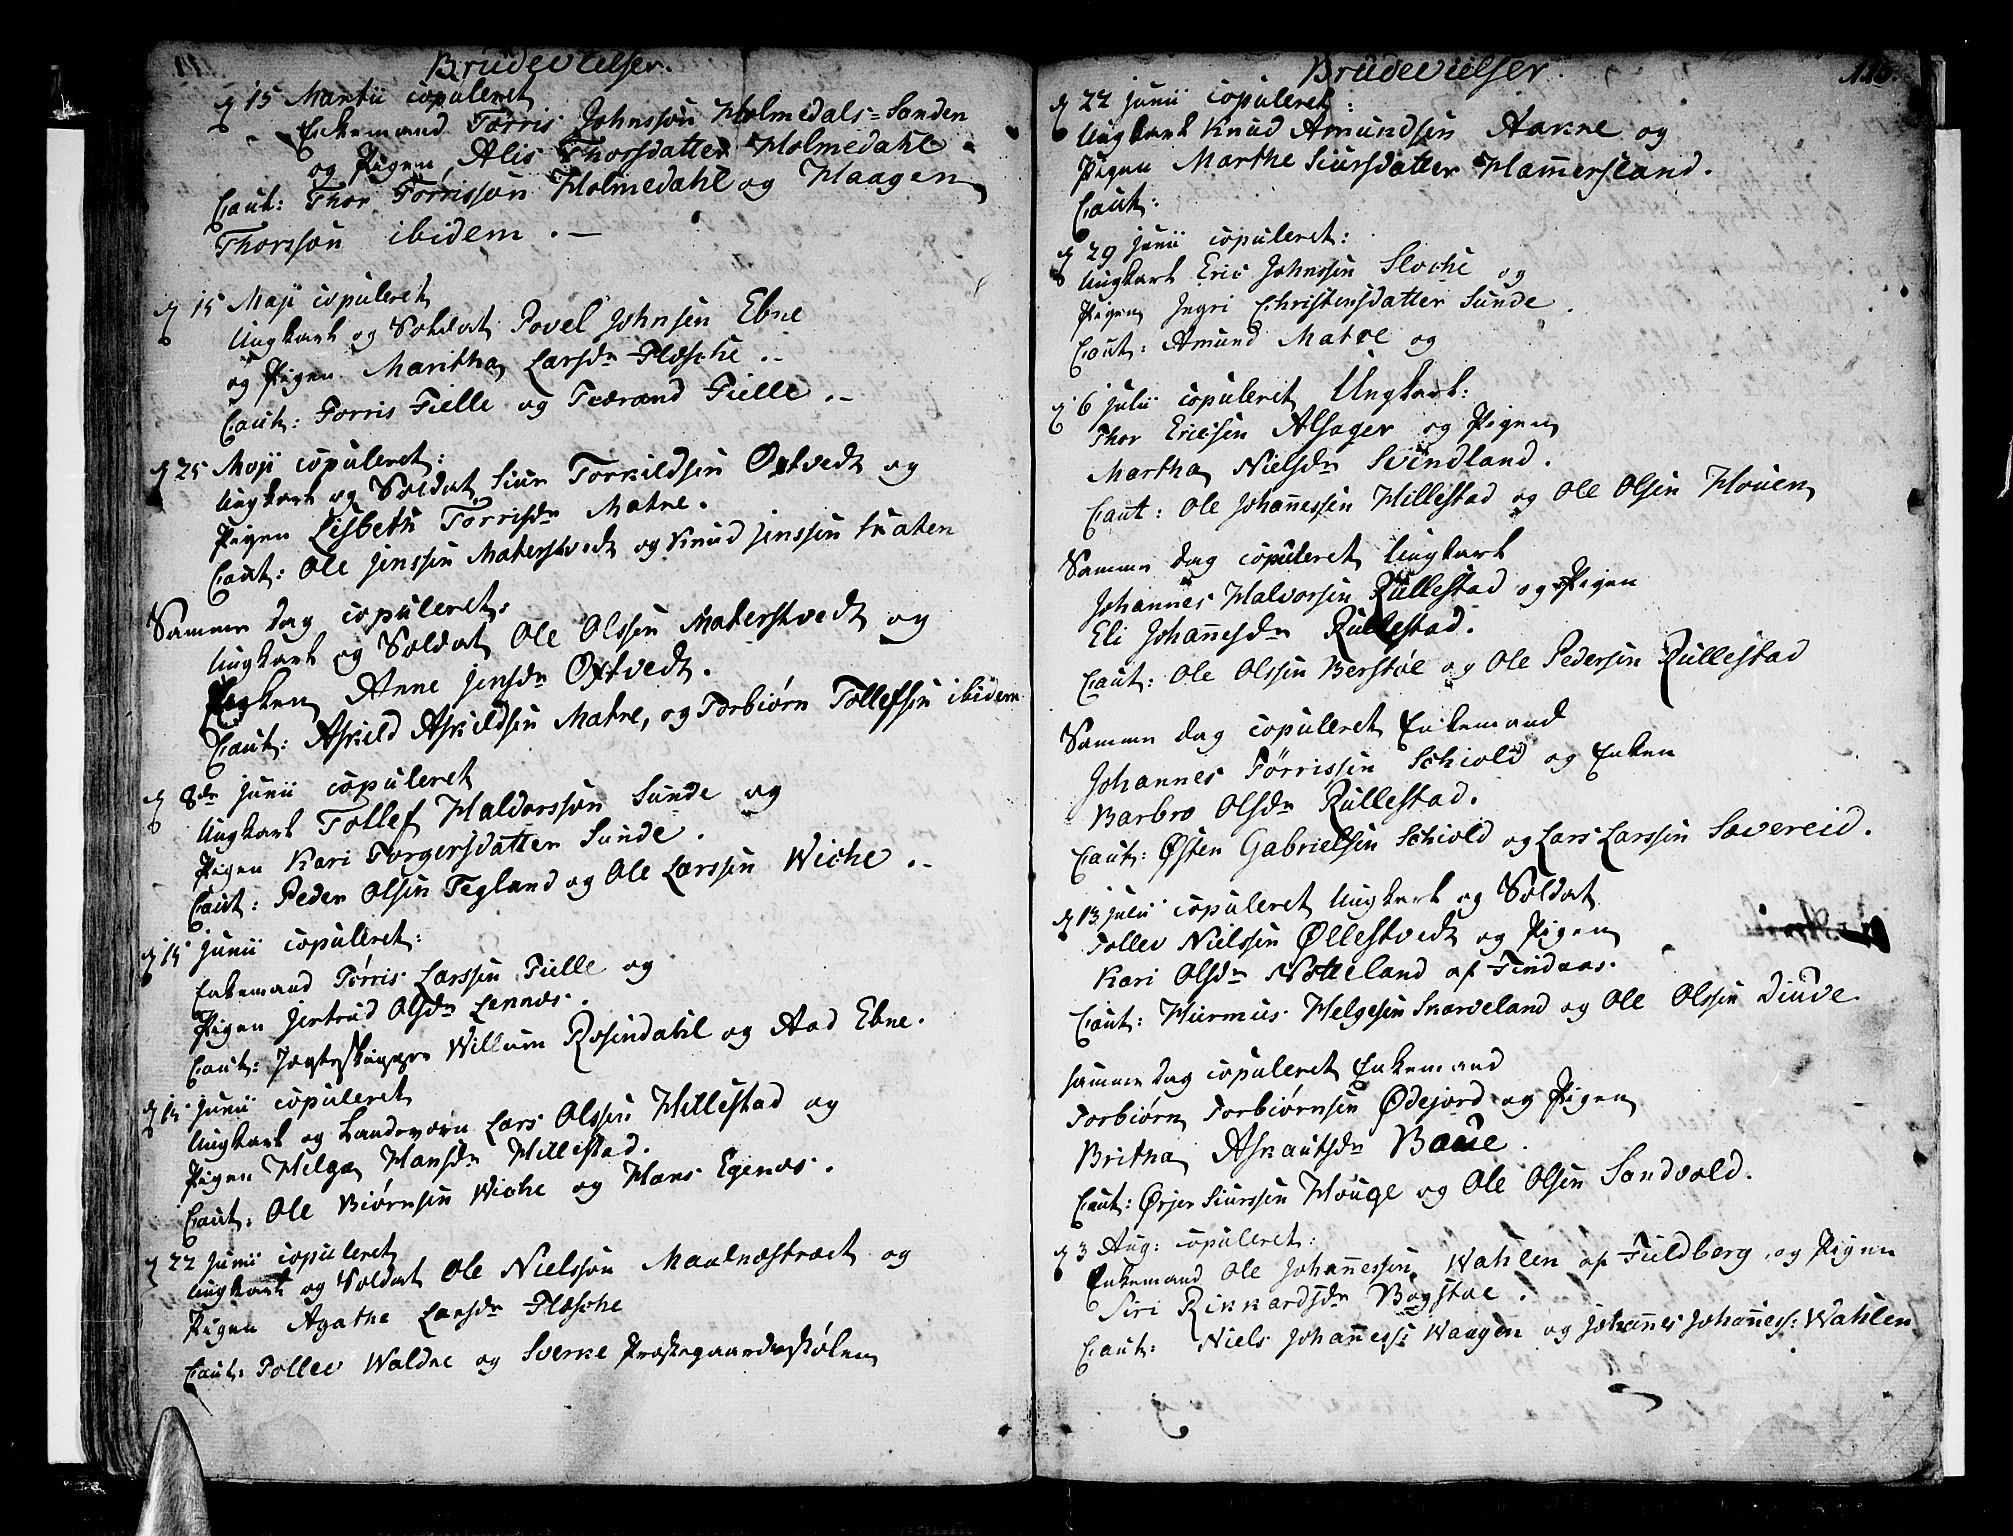 Brudevielser.
d 15 Martii copuleret
Enkemand Torris Johnssøn Holmedals-Sanden
og Pigen Alis Thorsdatter Holmedahl
Caut: Thor Tørrissøn Holmedahl og Haagen
Thorssøn ibidem.
d 15 Maji copuleret
Ungkarl og Soldat Povel Johnsen Ebne
og Pigen Maritha Larsdr Flæsche.
Caut: Torris Fielle og Tværand Fielle.
d 25 Maji copuleret:
Ungkarl og Soldat Siur Torkildsen Østvedt og
Pigen Lisbeth Torrisdr Matre.
Caut: Ole Jenssen Matrestvedt og Knud Jenssen
Samme dag copuleret:
Ungkarl og Soldat Ole Olssen Materstvedt og
Anne Jensdr Østvedt.
Caut: Askild Askildsen Matre, og Torbiørn Tollefsen ibidem
d 8de Junii copuleret
Ungkarl Tollef Haldorssøn Sunde og
Pigen Kari Torgersdatter Sunde.
Caut: Peder Olsen Tegland og Ole Larssen Wiche.
d 15 Junii copuleret:
Enkemand Tørris Larssen Fielle og
Pigen Jertrud Olsdr Lennæs.
Caut: Jægteskipper Willum Rosendahl og Aad Ebne.
d 15 Junii copuleret
Ungkarl og Landeværn Lars Olssen Millestad og
Pigen Helga Hansdr Millestad.
Caut: Ole Biørnsen Wiche og Hans Egenæs.
d 22 Junii copuleret
Ungkarl og Soldat Ole Nielssøn Maalnæstræet og
Pigen Agathe Larsdr Flæsche
Caut: Tollev Waldre og Sverke Præstegaardsstølen
Brudevielser.
d 22 Junii copuleret:
Ungkarl Knud Amundsen Aakre og
Pigen Marthe Siursdatter Hammersland.
Caut:
d 29 Junii copuleret:
Ungkarl Eric Johnssen Sloche og
Pigen Ingri Christensdatter Sunde.
Caut: Amund Matre og
d 6 Julii copuleret Ungkarl:
Thor Ericsen Alsager og Pigen
Martha Nielsdr Svindland.
Caut: Ole Johannessen Millestad og Ole Olsen Houen
Samme dag copuleret Ungkarl
Johannes Halvorsen Rullestad og Pigen
Eli Johannesdr Rullestad.
Caut: Ole Olssen Berstøe og Ole Pedersen Rullestad
Samme dag copuleret Enkemand
Johannes Tørrissen Schiold og Enken
Barbro Olsdr Rullestad.
Caut: Østen Gabrielsen Schiold og Lars Larssen Sævereid.
d 13 Julii copuleret Ungkarl og Soldat
Tollev Nielssen Øllestvedt og Pigen
Kari Olsdr Notteland af Findaas.
Caut: Hiermus Helgesen Skarveland og Ole Olssen Diuve.
Samme dag copuleret Enkemand
Torbiørn Torbiørnsen Ødejord og Pigen
Britha Askautsdr Baue.
Caut: Ørjer Siurssen Houge og Ole Olsen Sandvold.
d 3 Aug: copuleret:
Enkemand Ole Johannessen Wahlen af Fuldberg, og Pigen
Siri Rikkardsdr Bogstøe.
Caut: Niels Johanness: Waagen og Johannes Johanness: Wahlen